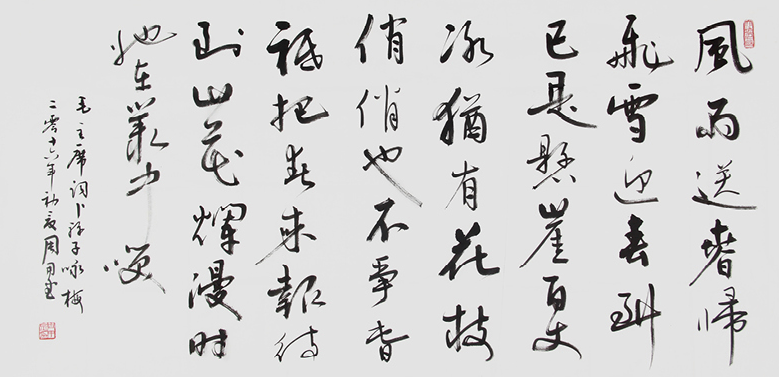 風雨送春歸
飛雪迎春到
已是懸崖百丈
冰猶有花枝
俏俏也不爭春
祇把春來報待
到山花爛漫時
她在叢中笑
毛主席詞卜算子咏梅
二零十六年初夏周